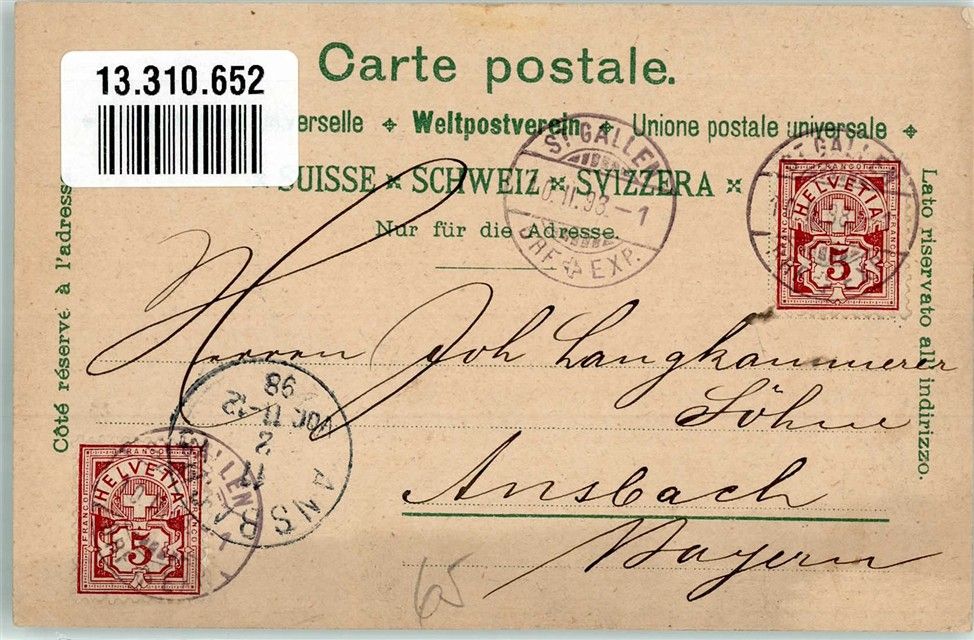 13.310.652
Carte postale.
erselle Weltpostverein Unione postale universale
SUISSE SCHWEIZ SVIZZERA
Nur für die Adresse.
Côté réservé à l'adresse
Lato riservato all indirizzo.
ST GALLEN
10.II.98.-1
BRF. EXP.
ST GALLEN
FRANCO
HELVETIA
FRANCO
FRANCO
5
Herren Joh Langkammerer
Söhne
Ansbach
Bayern
ANSB
11
2
VOR 11-12
98
GALLEN
FRANCO
HELVETIA
FRANCO
5
65